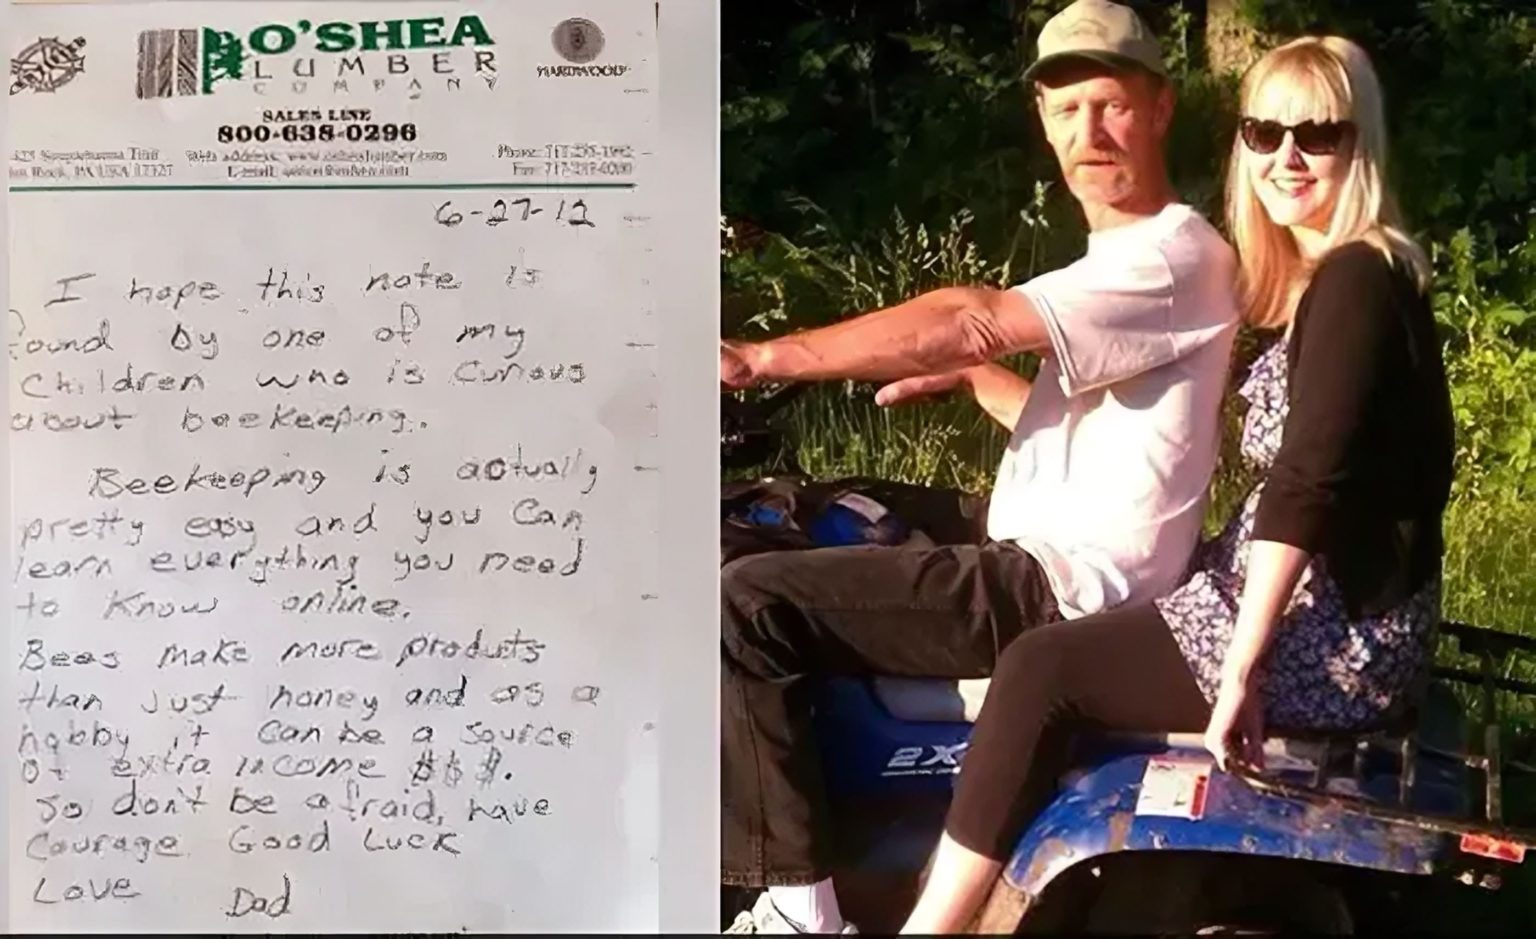 O'SHEA
LUMBER
COMPANY
HARDWOOD
SALES LINE
800-638-0296
6-27-12
I hope this note is
found by one of my
Children who is curious
about beekeeping.
Beekeeping is actually
pretty easy and you can
learn everything you need
to know online.
Bees make more products
than just honey and as a
hobby it can be a source
of extra income $$$.
So don't be afraid, have
courage Good Luck
Love Dad
2X